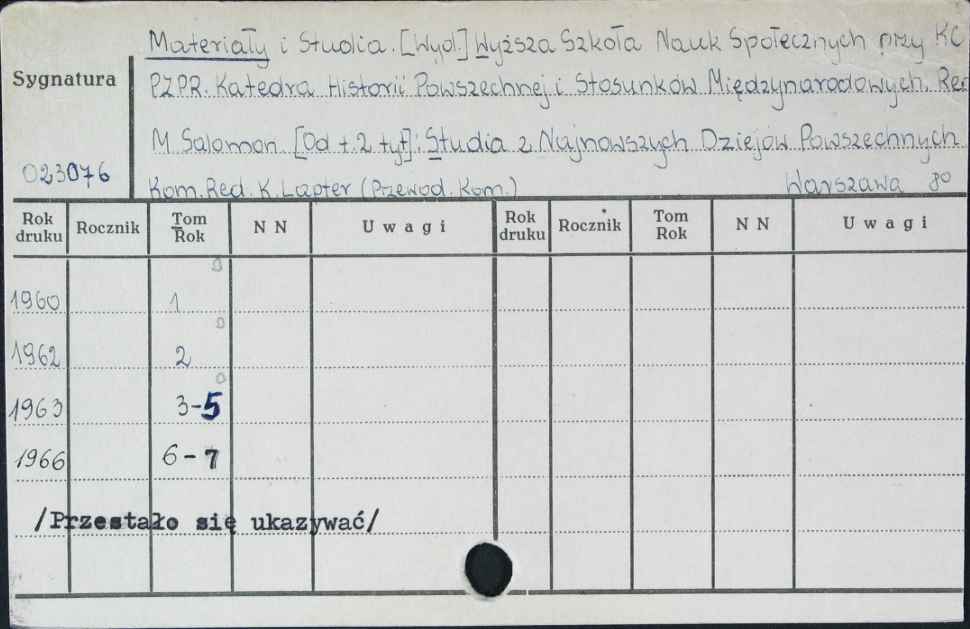 Materiały i Studia. [Wyd.] Wyższa Szkoła Nauk Społecznych przy KC
Sygnatura
PZPR. Katedra Historii Powszechnej i Stosunków Międzynarodowych. Red
M. Salomon [Od t. 2 tyt]: Studia z Najnowszych Dziejów Powszechnych
023076
Kom. Red. K. Lapter (Przewod. Kom.) Warszawa 80
Rok druku Rocznik Tom Rok N N Uwagi Rok druku Rocznik Tom Rok N N Uwagi
1960 1
1962 2
1963 3-5
1966 6-7
/Przestało się ukazywać/